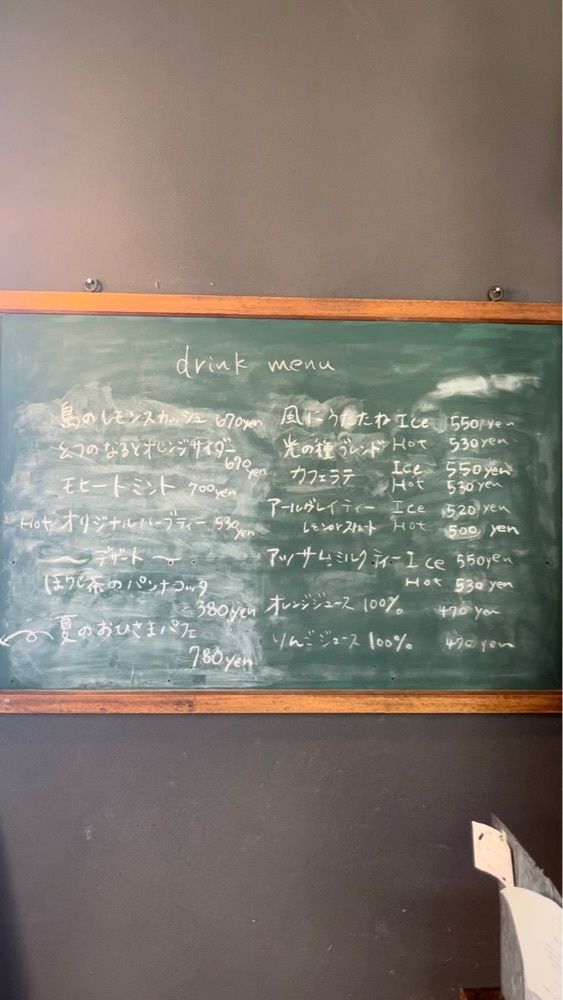 drink menu
島のレモンスカッシュ 670yen
まつのなるとオレンジサイダー
670yen
モヒートミント 700yen
Hot オリジナルハーブティー 530yen
〜 デザート 〜
ほうじ茶のパンナコッタ
380yen
夏のおひさまパフェ
780yen
風にうたたね Ice 550yen
光の種ブレンド Hot 530yen
カフェラテ Ice 550yen
Hot 530yen
アールグレイティー Ice 520yen
Hot 500 yen
アッサムミルクティー Ice 550yen
Hot 530yen
オレンジジュース 100% 470yen
りんごジュース 100% 470yen